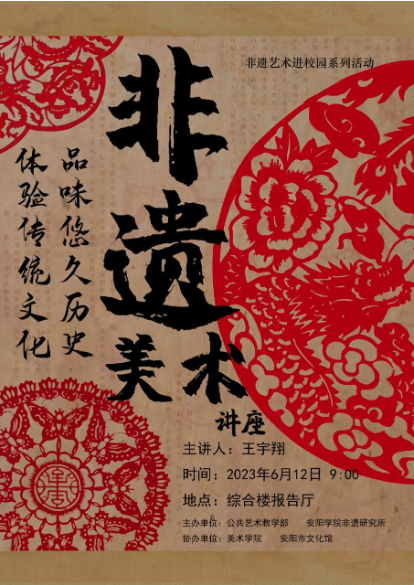 非遗艺术进校园系列活动
非遗
美术
讲座
品味悠久历史
体验传统文化
主讲人：王宇翔
时间：2023年6月12日 9:00
地点：综合楼报告厅
主办单位：公共艺术教学部 安阳学院非遗研究所
协办单位：美术学院 安阳市文化馆